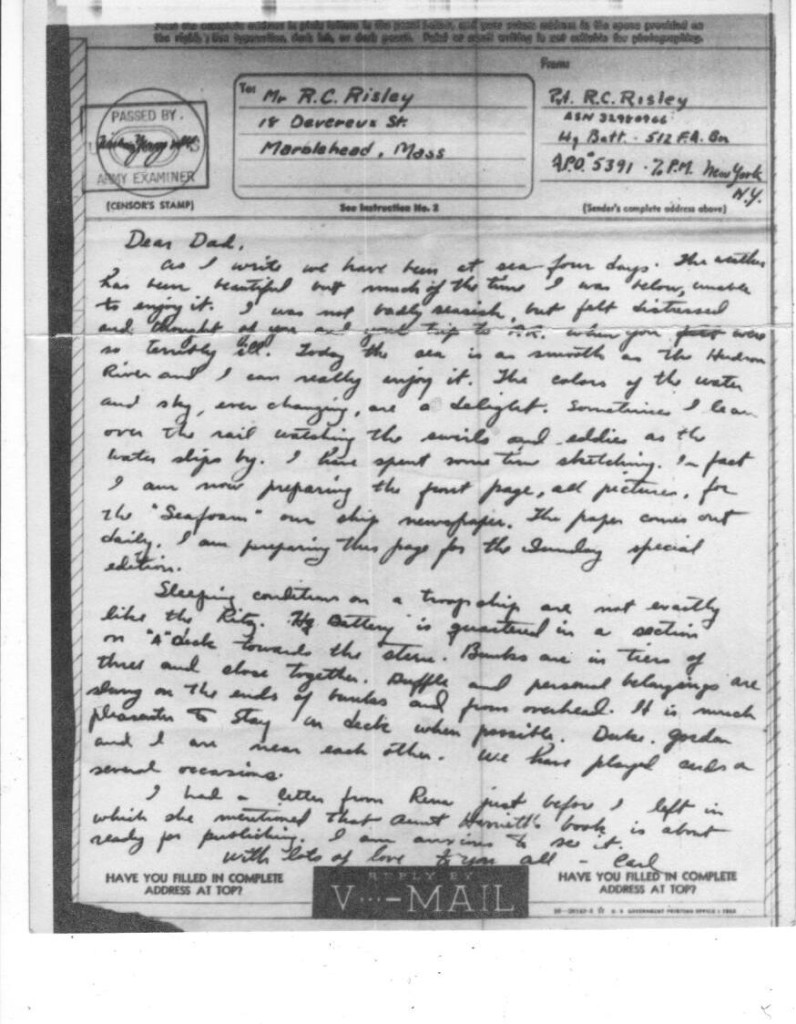 Print the complete address in plain letters in the panel below, and your return address in the space provided on
the right. Use typewriter, dark ink, or dark pencil. Faint or small writing is not suitable for photographing.
PASSED BY
U S
ARMY EXAMINER
(CENSOR'S STAMP)
To: Mr R.C. Risley
18 Devereux St.
Marblehead, Mass
See Instruction No. 2
From:
Pvt. R.C. Risley
ASN 32980966
Hq Batt. - 512 F.A. Bn
A.P.O. #5391 - % P.M. New York
N.Y.
(Sender's complete address above)
Dear Dad,
As I write we have been at sea four days. The weather
has been beautiful but much of the time I was below, unable
to enjoy it. I was not badly seasick, but felt distressed
and thought of you and your trip to when you were
so terribly ill. Today the sea is as smooth as the Hudson
River and I can really enjoy it. The colors of the water
and sky, ever changing, are a delight. Sometimes I lean
over the rail watching the swirls and eddies as the
water slips by. I have spent some time sketching. In fact
I am now preparing the front page, all pictures, for
the "Seafoam" our ship newspaper. The paper comes out
daily. I am preparing this page for the Sunday special
edition.
Sleeping conditions on a troopship are not exactly
like the Ritz. Hq Battery is quartered in a section
on "A" deck towards the stern. Bunks are in tiers of
three and close together. Duffle and personal belongings are
slung on the ends of bunks and from overhead. It is much
pleasanter to stay on deck when possible. Duke, Gordon
and I are near each other. We have played cards on
several occasions.
I had a letter from Rena just before I left in
which she mentioned that Aunt Harriett's book is about
ready for publishing. I am anxious to see it.
With lots of love to you all - Carl
HAVE YOU FILLED IN COMPLETE
ADDRESS AT TOP?
REPLY BY
V···-MAIL
HAVE YOU FILLED IN COMPLETE
ADDRESS AT TOP?
U. S. GOVERNMENT PRINTING OFFICE : 1943